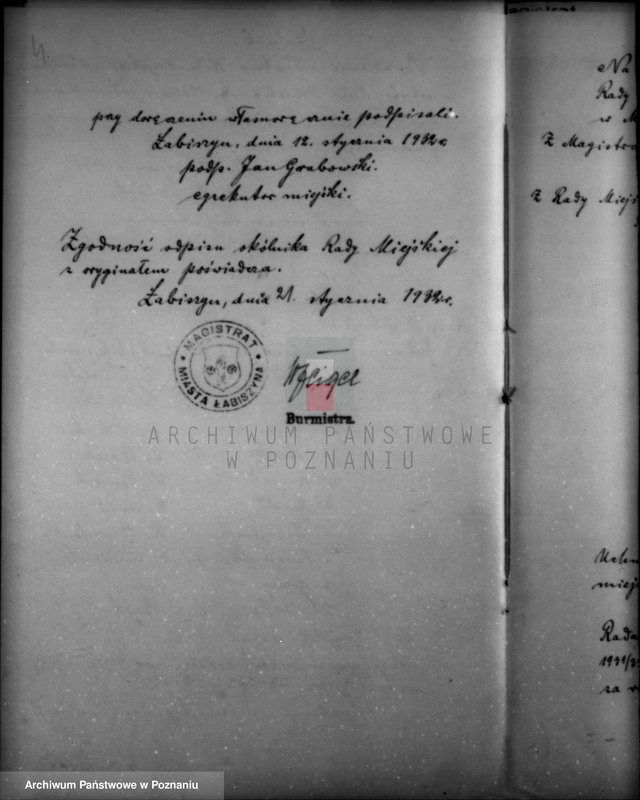 przy doręczeniu własnoręcznie podpisali.
Łabiszyn, dnia 12. stycznia 1932 r.
podp. Jan Grabowski.
egzekutor miejski.
Zgodność odpisu okólnika Rady Miejskiej
z oryginałem poświadcza.
Łabiszyn, dnia 21. stycznia 1932 r.
MAGISTRAT
MIASTA ŁABISZYNA
Burmistrz.
ARCHIWUM PAŃSTWOWE
W POZNANIU
Na
Rady
w M
Z Magistra
Z Rady Miejs
miejs
Rada
1931/3
za
Archiwum Państwowe w Poznaniu